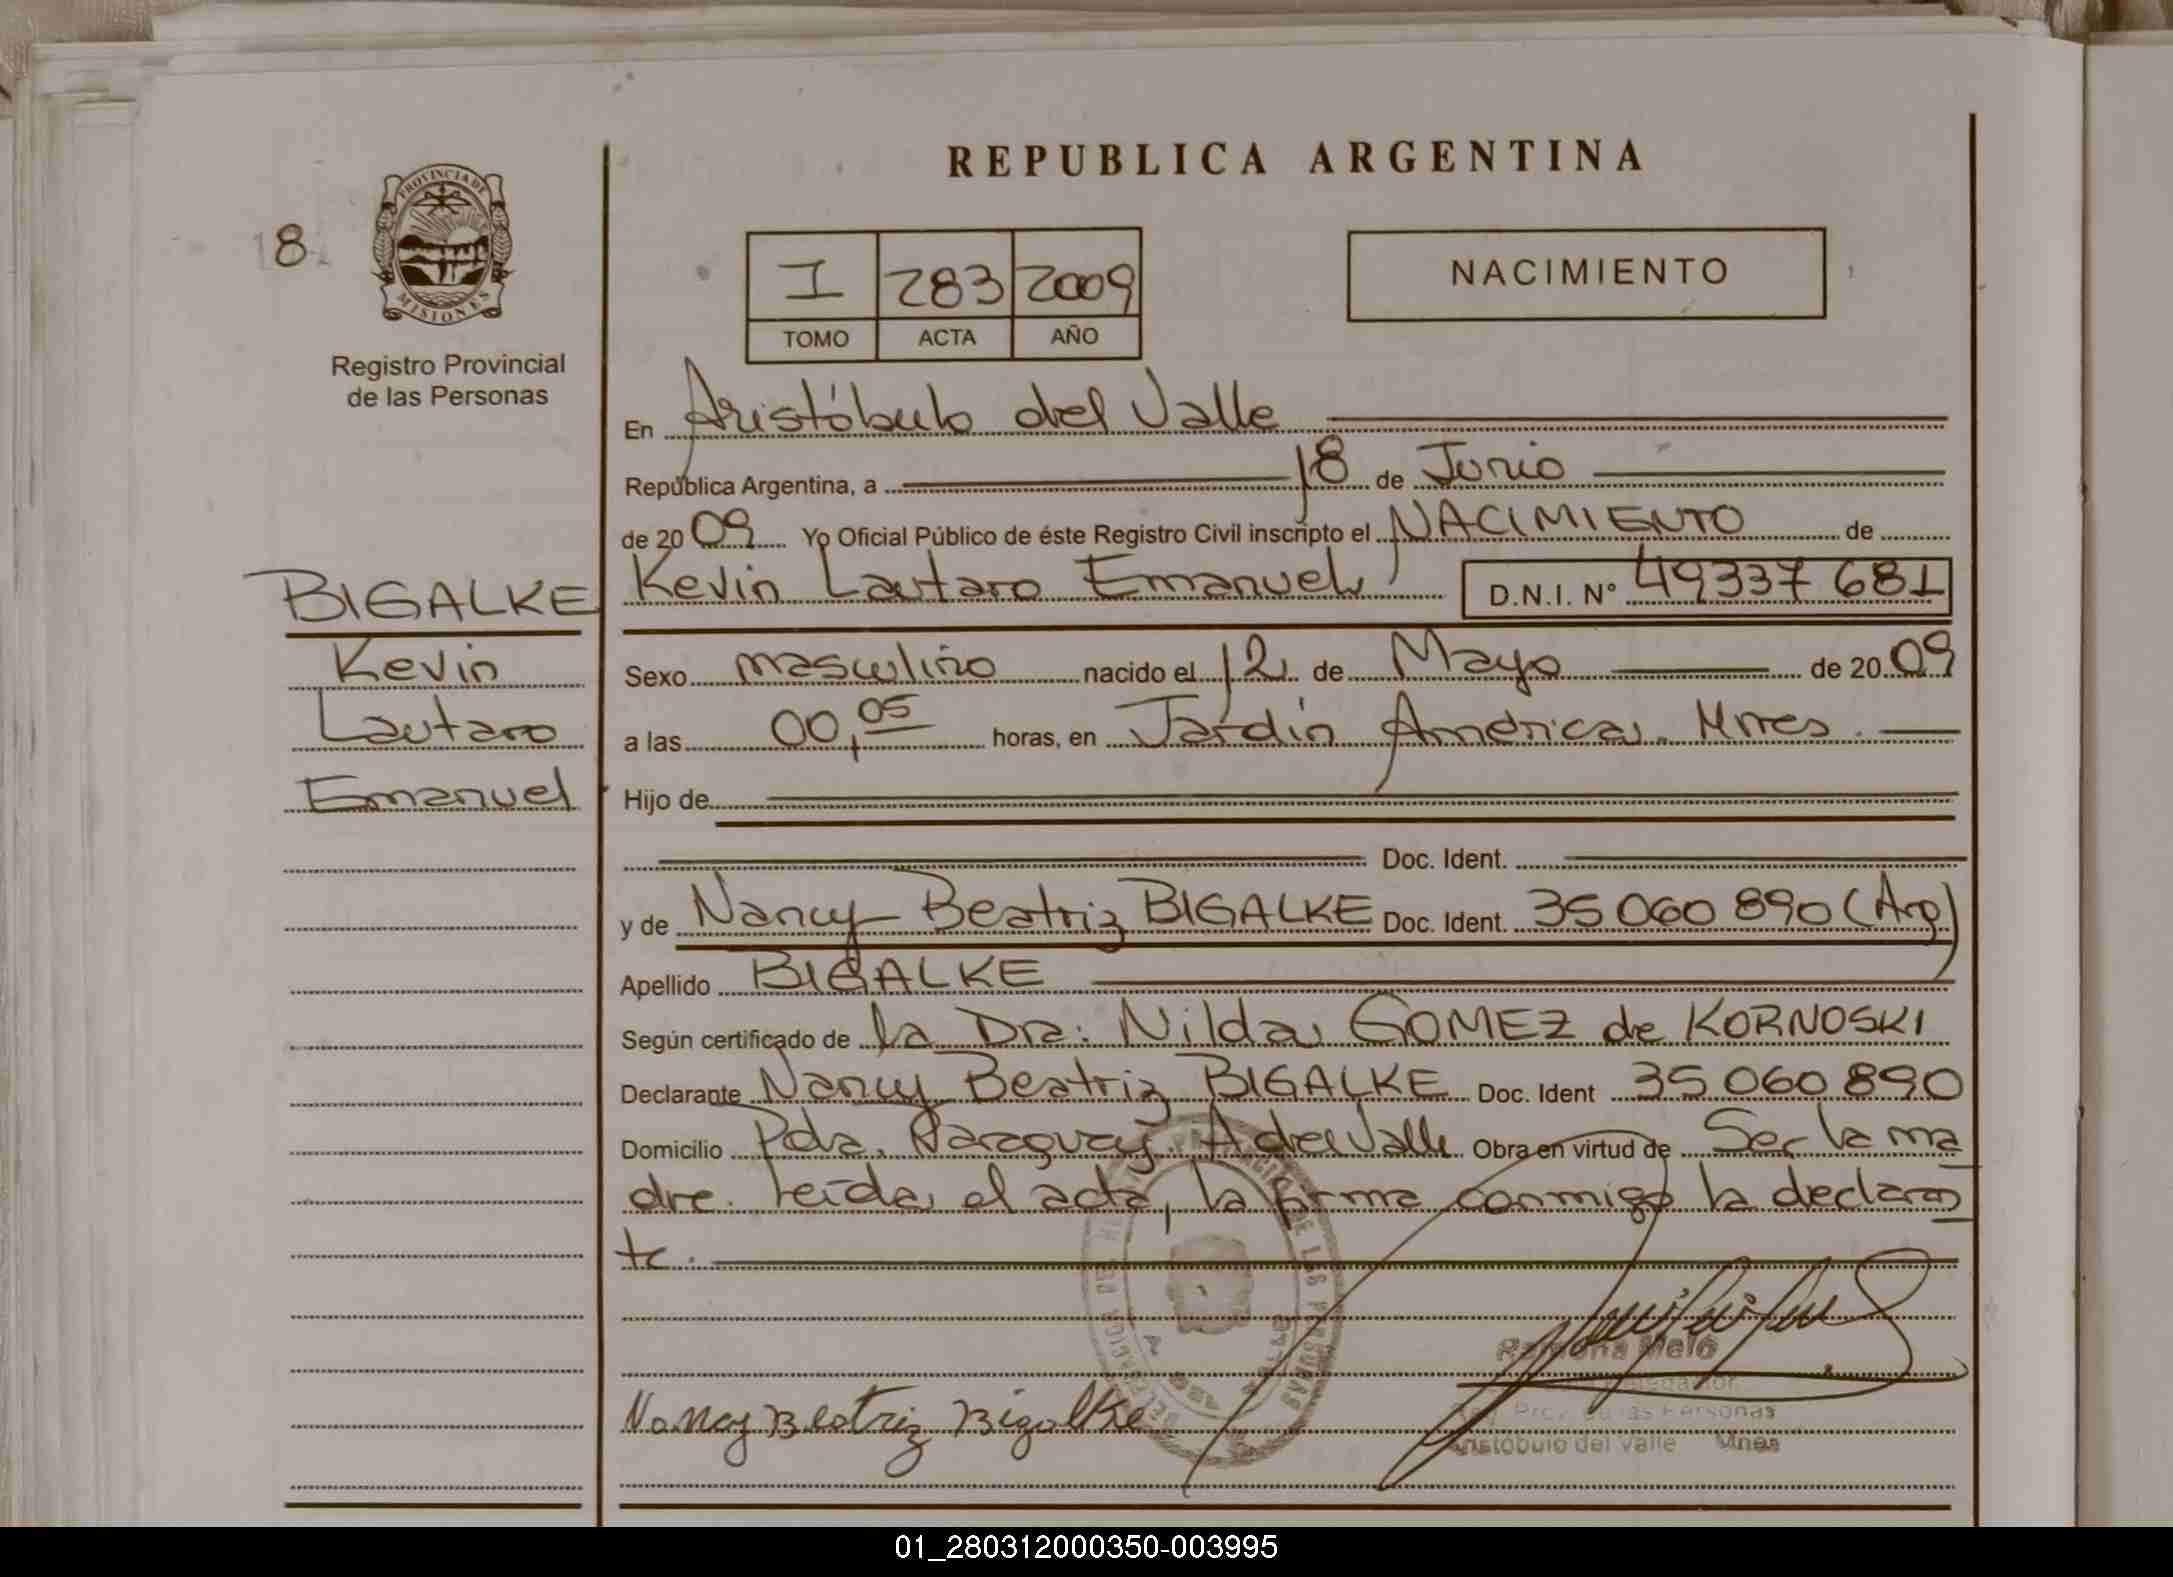 REPUBLICA ARGENTINA
8
PROVINCIA DE
MISIONES
Registro Provincial
de las Personas
I 283 2009
TOMO ACTA AÑO
NACIMIENTO
En Aristóbulo del Valle
República Argentina, a 18 de Junio
de 2009 Yo Oficial Público de éste Registro Civil inscripto el NACIMIENTO de
BIGALKE
Kevin
Lautaro
Emanuel
Kevin Lautaro Emanuel D.N.I. Nº 49337 681
Sexo masculino nacido el 12 de Mayo de 2009
a las 00,05 horas, en Jardín América. Mnes.
Hijo de
Doc. Ident.
y de Nancy Beatriz BIGALKE Doc. Ident. 35 060 890 (Arg)
Apellido BIGALKE
Según certificado de la Dra: Nilda GOMEZ de KORNOSKI
Declarante Nancy Beatriz BIGALKE Doc. Ident 35 060 890
Domicilio Pda. Paraguay A del Valle Obra en virtud de Ser la ma
dre. Leída el acta, la firma conmigo la declaran
te.
Nancy Beatriz Bigalke
Ramona Melo
Reg. Prov. de las Personas
Aristóbulo del Valle Mnes
01_280312000350-003995